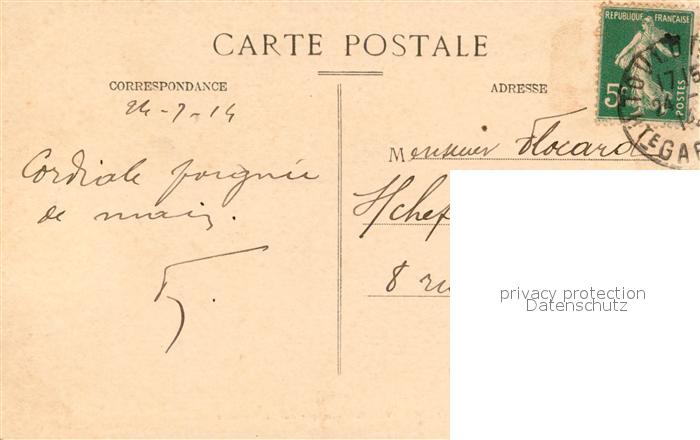 CARTE POSTALE
REPUBLIQUE FRANÇAISE
5c
POSTES
CORRESPONDANCE
ADRESSE
24-7-14
Cordiale poignée
de main.
Monsieur Flocard
S/chef
8 ru
privacy protection
Datenschutz